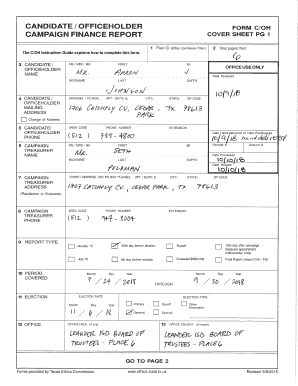 CANDIDATE / OFFICEHOLDER
CAMPAIGN FINANCE REPORT
FORM C/OH
COVER SHEET PG 1
The C/OH Instruction Guide explains how to complete this form.
1 Filer ID (Ethics Commission Filers)
2 Total pages filed:
6
3 CANDIDATE / OFFICEHOLDER NAME
MS / MRS / MR FIRST MI
Mr. Aaron J
NICKNAME LAST SUFFIX
Johnson
OFFICE USE ONLY
Date Received
10/9/18
4 CANDIDATE / OFFICEHOLDER MAILING ADDRESS
Change of Address
ADDRESS / PO BOX; APT / SUITE #; CITY; STATE; ZIP CODE
Cedar Park, TX 78613
5 CANDIDATE / OFFICEHOLDER PHONE
AREA CODE PHONE NUMBER EXTENSION
(512)
Date Hand-delivered or Date Postmarked
Receipt # Amount $
6 CAMPAIGN TREASURER NAME
MS / MRS / MR FIRST MI
Mr. Seth
NICKNAME LAST SUFFIX
Feldman
Date Processed
10/10/18
Date Imaged
10/10/18
7 CAMPAIGN TREASURER ADDRESS
(Residence or Business)
STREET ADDRESS (NO PO BOX PLEASE); APT / SUITE #; CITY; STATE; ZIP CODE
Cedar Park, TX 78613
8 CAMPAIGN TREASURER PHONE
AREA CODE PHONE NUMBER EXTENSION
(512)
9 REPORT TYPE
January 15 30th day before election Runoff 15th day after campaign treasurer appointment (Officeholder Only)
July 15 8th day before election Exceeded $500 limit Final Report (Attach C/OH - FR)
10 PERIOD COVERED
Month Day Year Month Day Year
7 / 24 / 2018 THROUGH 9 / 30 / 2018
11 ELECTION
ELECTION DATE ELECTION TYPE
Month Day Year Primary Runoff Other Description
11 / 6 / 18 General Special
12 OFFICE
OFFICE HELD (if any)
Leander ISD Board of
Trustees - Place 6
13 OFFICE SOUGHT (if known)
Leander ISD Board of
Trustees - Place 6
GO TO PAGE 2
Forms provided by Texas Ethics Commission www.ethics.state.tx.us Revised